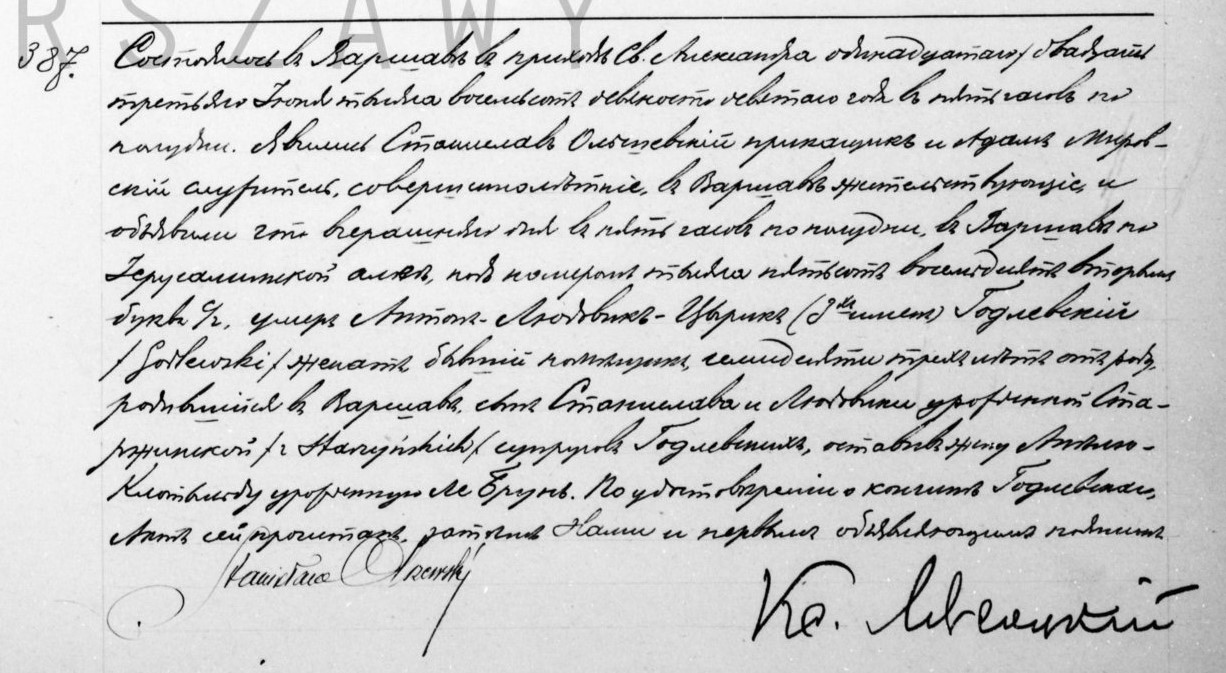 RSZAWY
387. Состоялось въ Варшавѣ въ приходѣ Св. Александра одинадцатаго/двадцать
третьяго Іюня тысяча восемьсотъ девяносто девятаго года въ пять часовъ по
полудни. Явились Станиславъ Ольшевскій прикащикъ и Адамъ Миров-
скій служитель, совершеннолѣтніе, въ Варшавѣ жительствующіе, и
объявили что вчерашняго дня въ пять часовъ по полудни, въ Варшавѣ по
Іерусалимской аллеѣ, подъ номеромъ тысяча пятьсотъ восемьдесятъ вторымъ
буква умеръ Антонъ-Людовикъ-Цырикъ (3хъ именъ) Годлевскій
/Godlewski/ женатъ бывшій помѣщикъ, семидесяти трехъ лѣтъ отъ роду,
родившійся въ Варшавѣ, сынъ Станислава и Людовики урожденной Ста-
ржинской /z Starzyńskich/ супруговъ Годлевскихъ, оставивъ жену Анелю-
Клотильду урожденную Ле Брунъ. По удостовѣреніи о кончинѣ Годлевскаго,
Актъ сей прочитанъ, затѣмъ Нами и первымъ объявляющимъ подписанъ
Stanisław Olszewski
Кс.